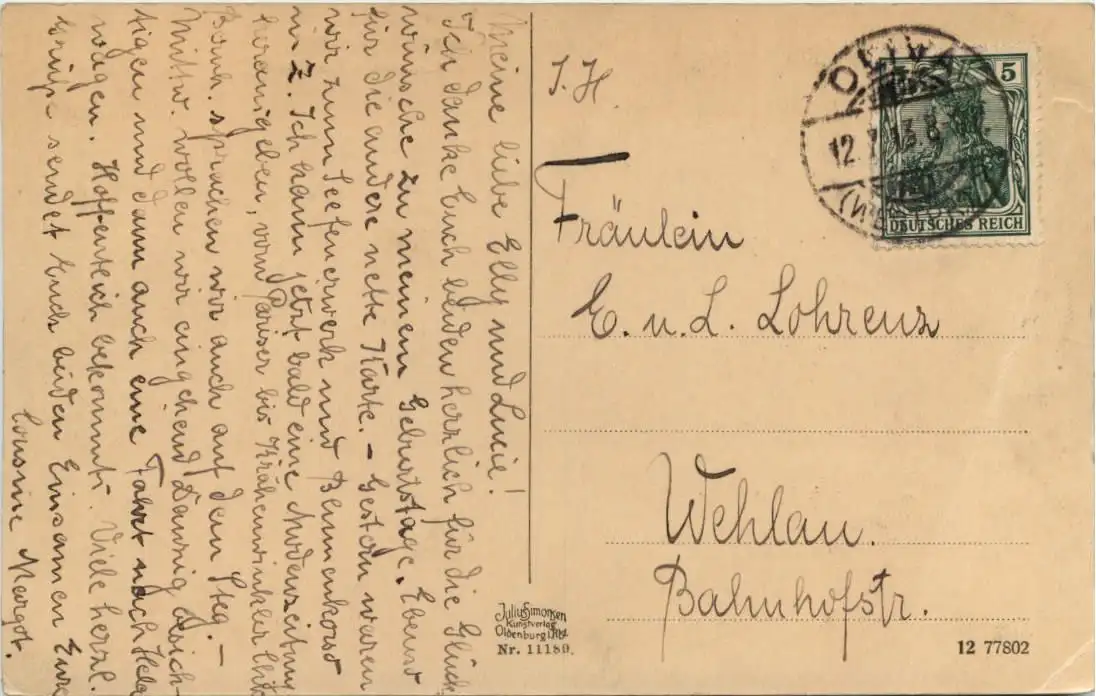 Meine liebe Elly und Lucie!
Ich danke Euch beiden herzlich für die Glück
wünsche zu meinem Geburtstage. Ebenso
für die andere nette Karte. – Gestern waren
wir zum Seefeuerwerk und Blumenkorso
in Z. Ich kann jetzt bald eine Modenzeitung
herausgeben, vom Pariser bis Krähenwinkler Chik
Bornh. sprachen wir auch auf dem Steg. –
Mittw. wollen wir eingehend Danzig besich-
tigen und dann auch eine Fahrt nach Hela
wagen. Hoffentlich bekommt's. Viele herzl.
Grüße sendet Euch beiden Einsamen Eure
Cousine Margot.
J. H.
Fräulein
E. u. L. Lohrenz
Wehlau.
Bahnhofstr.
OLIVA
12. 7. 13. 8
5
DEUTSCHES REICH
Julius Simonsen
Kunstverlag
Oldenburg i. Hol.
Nr. 11189.
12 77802